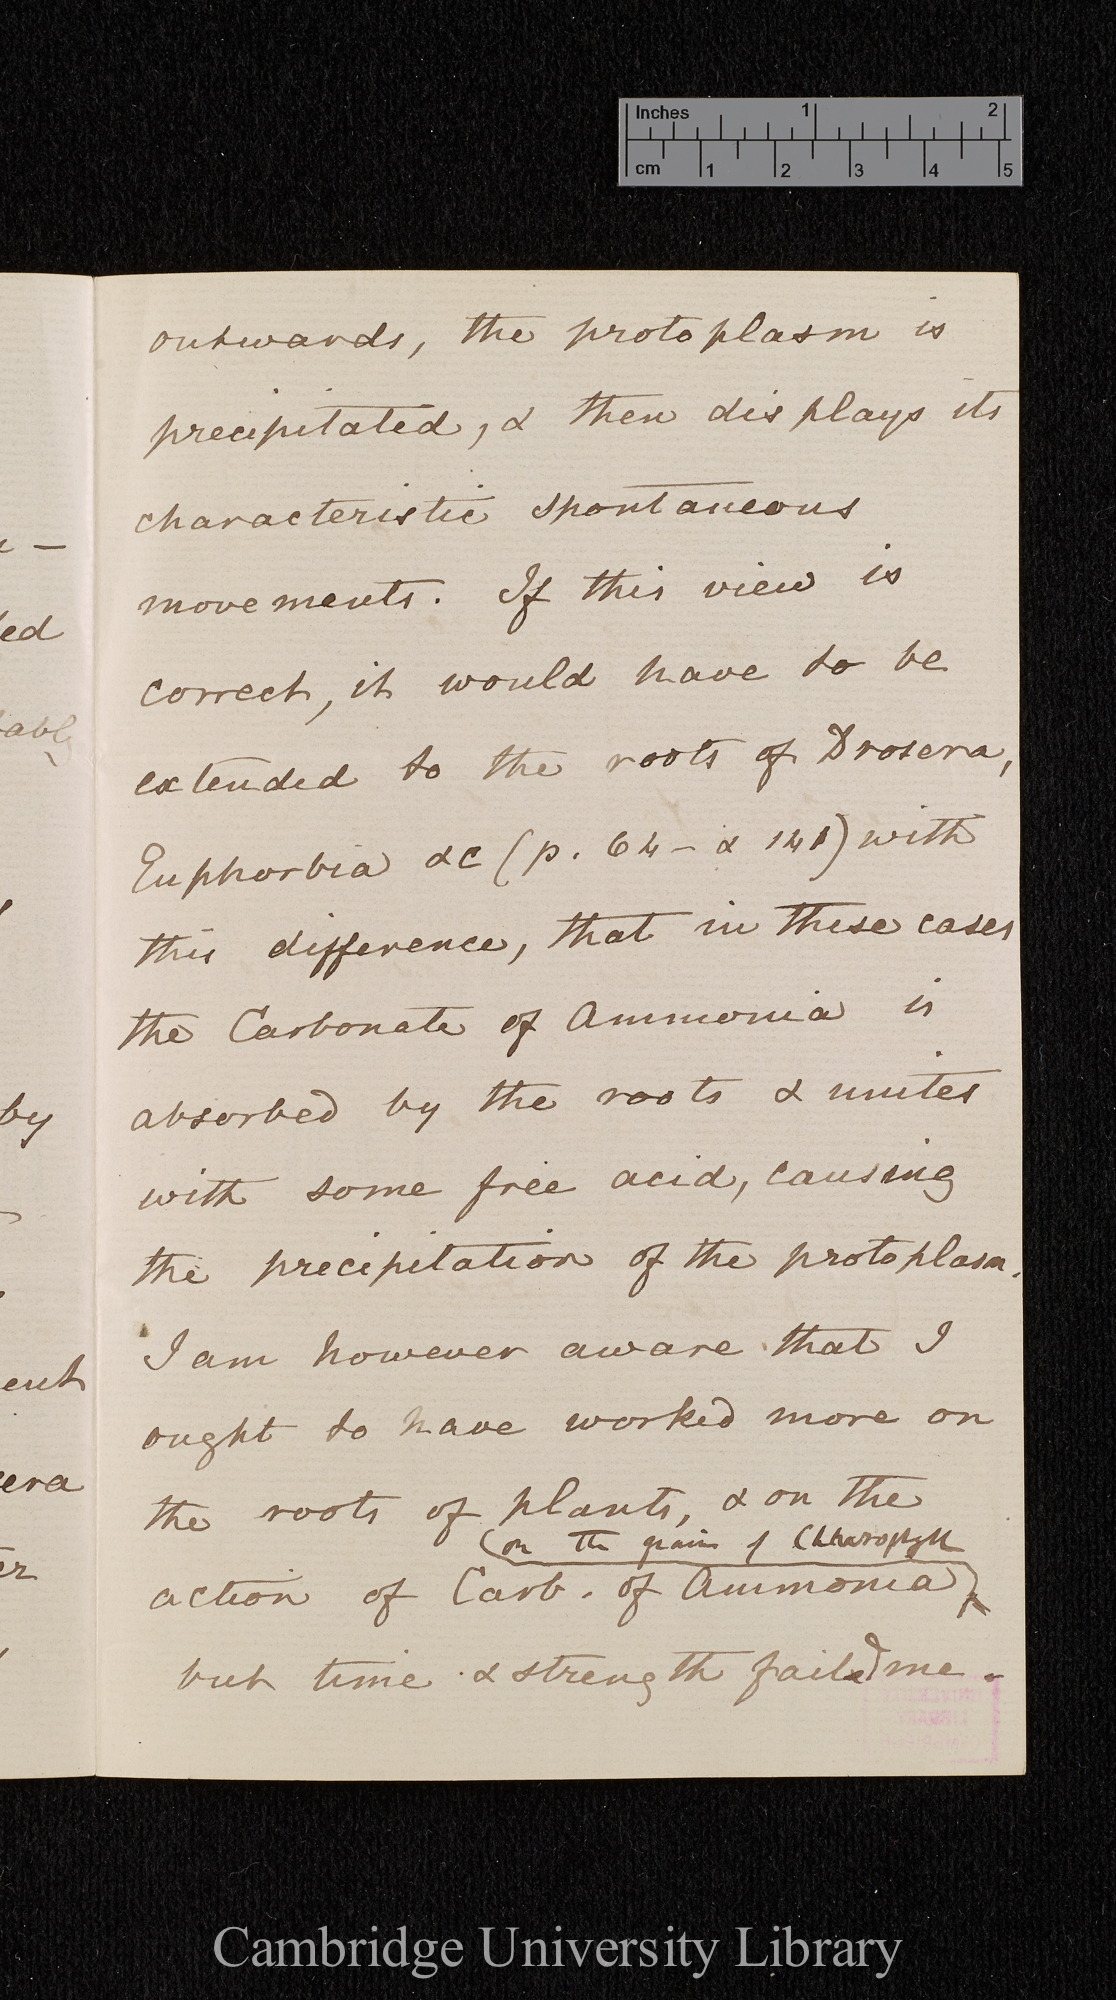 Inches 1 2
cm 1 2 3 4 5
outwards, the protoplasm is
precipitated, & then displays its
characteristic spontaneous
movements. If this view is
correct, it would have to be
extended to the roots of Drosera,
Euphorbia &c (p. 64 - & 141) with
this difference, that in these cases
the Carbonate of Ammonia is
absorbed by the roots & unites
with some free acid, causing
the precipitation of the protoplasm.
I am however aware that I
ought to have worked more on
the roots of plants, & on the
(on the grains of Chlorophyll
action of Carb. of Ammonia)
but time & strength failed me.
by
era
Cambridge University Library